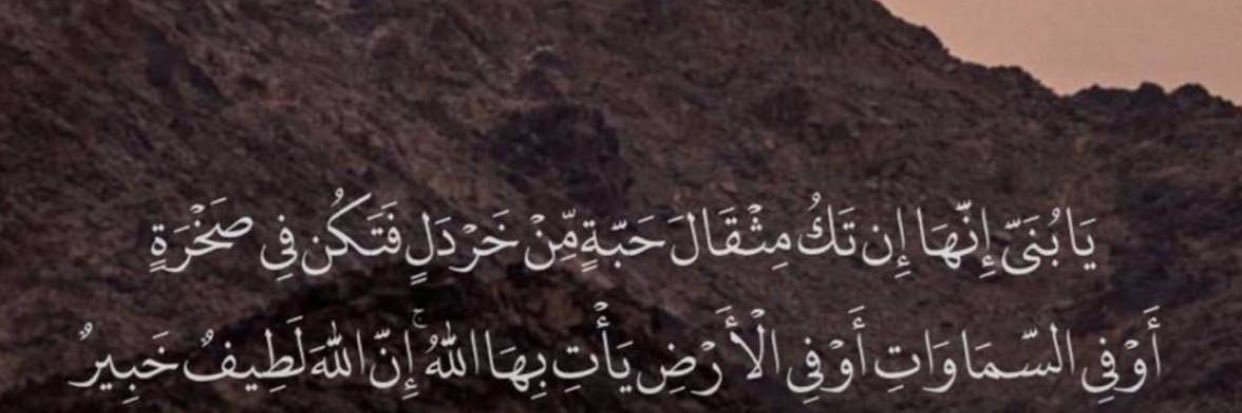 يَا بُنَيَّ إِنَّهَا إِن تَكُ مِثْقَالَ حَبَّةٍ مِّنْ خَرْدَلٍ فَتَكُن فِي صَخْرَةٍ
أَوْ فِي السَّمَاوَاتِ أَوْ فِي الْأَرْضِ يَأْتِ بِهَا اللَّهُ ۚ إِنَّ اللَّهَ لَطِيفٌ خَبِيرٌ